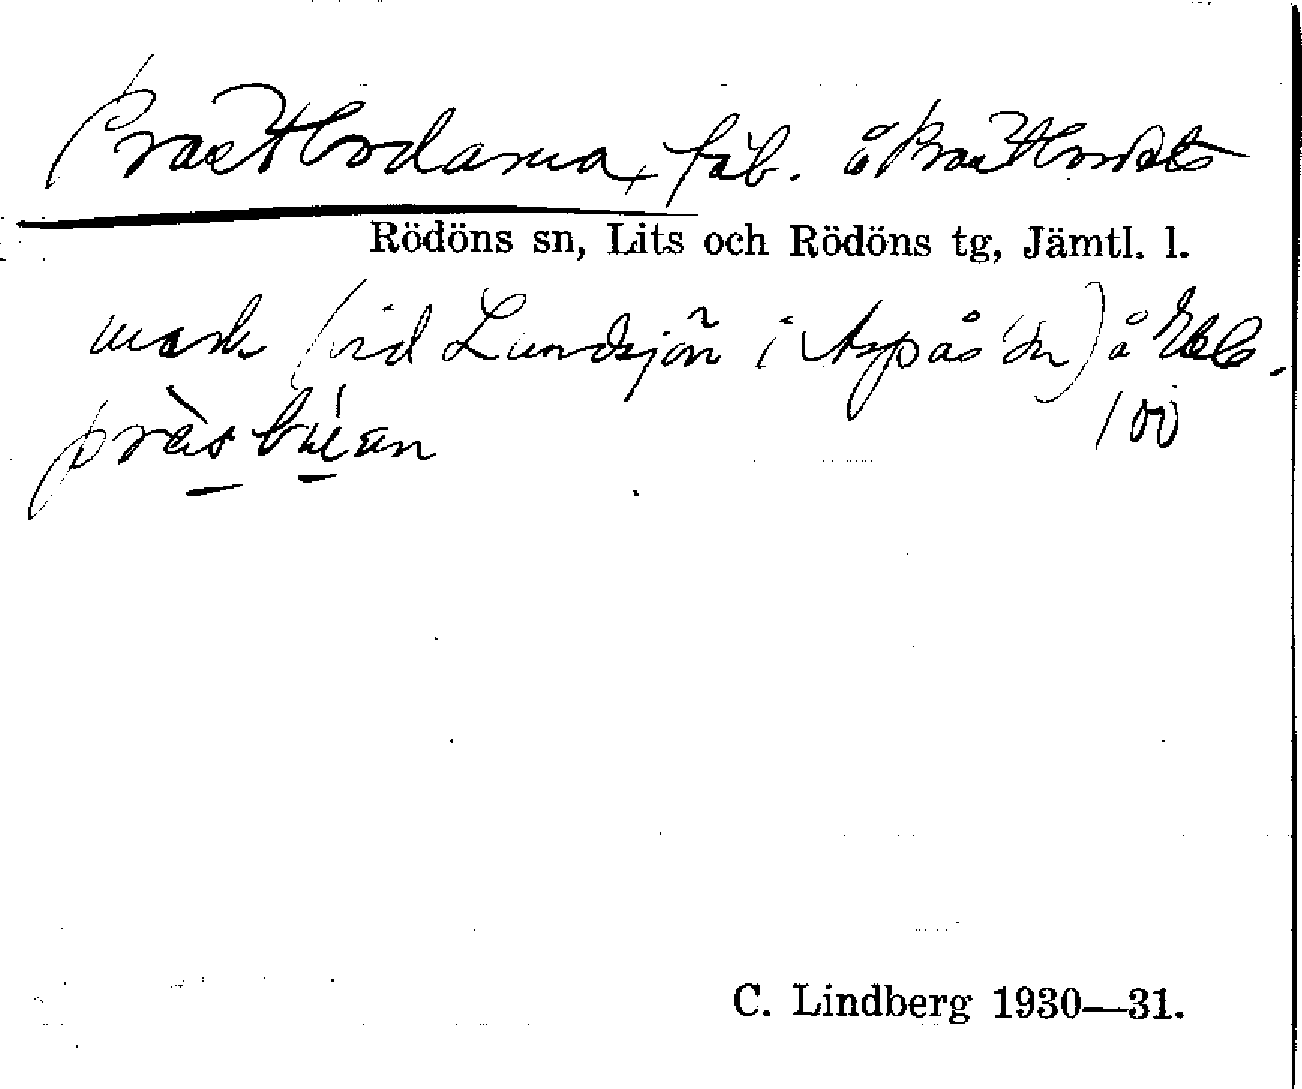 Prästbodarna, fäb. å Prästbordets
Rödöns sn, Lits och Rödöns tg, Jämtl. l.
mark (vid Lundsjön i Aspås sn) å Ebl.
100
pràsbúan
C. Lindberg 1930—31.